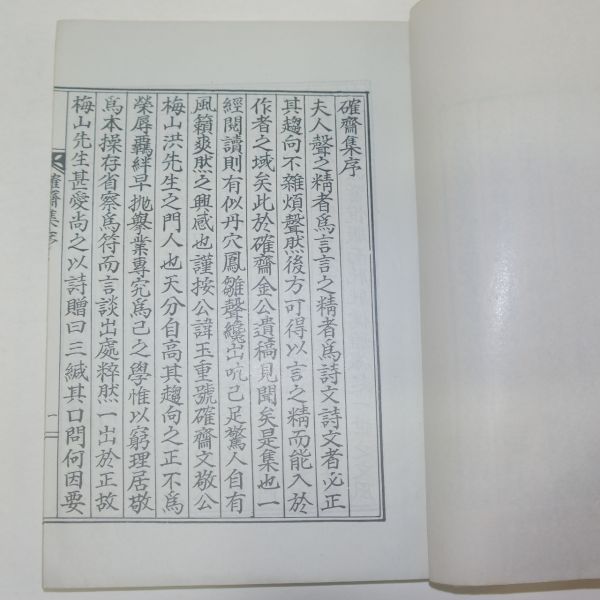 確齋集序
夫人聲之精者爲言言之精者爲詩文詩文者必正
其趨向不雜煩聲然後方可得以言之精而能入於
作者之域矣此於確齋金公遺稿見聞矣是集也一
經閱讀則有似丹穴鳳雛聲纔出吭已足驚人自有
風籟爽然之興感也謹按公諱玉重號確齋文敬公
梅山洪先生之門人也天分自高其趨向之正不爲
榮辱羈絆早抛擧業專究爲己之學惟以窮理居敬
爲本操存省察爲符而言談出處粹然一出於正故
梅山先生甚愛尚之以詩贈曰三緘其口問何因要
確齋集序
一